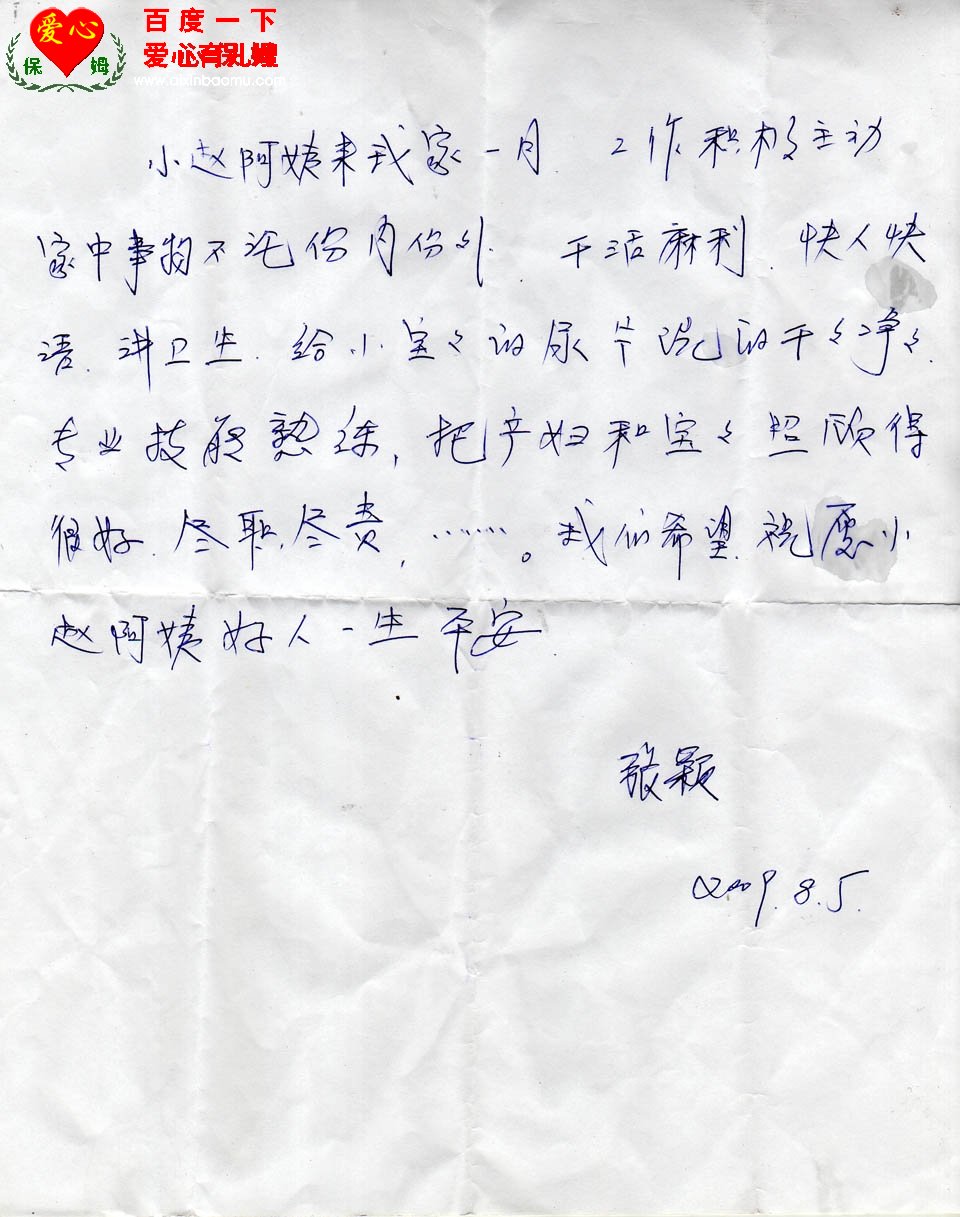 爱心
保姆
百度一下
www.aixinbaomu.com
小赵阿姨来我家一月. 工作积极主动
家中事物不论份内份外. 干活麻利. 快人快
语. 讲卫生. 给小宝々的尿片洗的干々净々.
专业技能熟练, 把产妇和宝々照顾得
很好. 尽职. 尽责, ……。我们希望. 祝愿小
赵阿姨好人一生平安
张颖
2009.8.5.